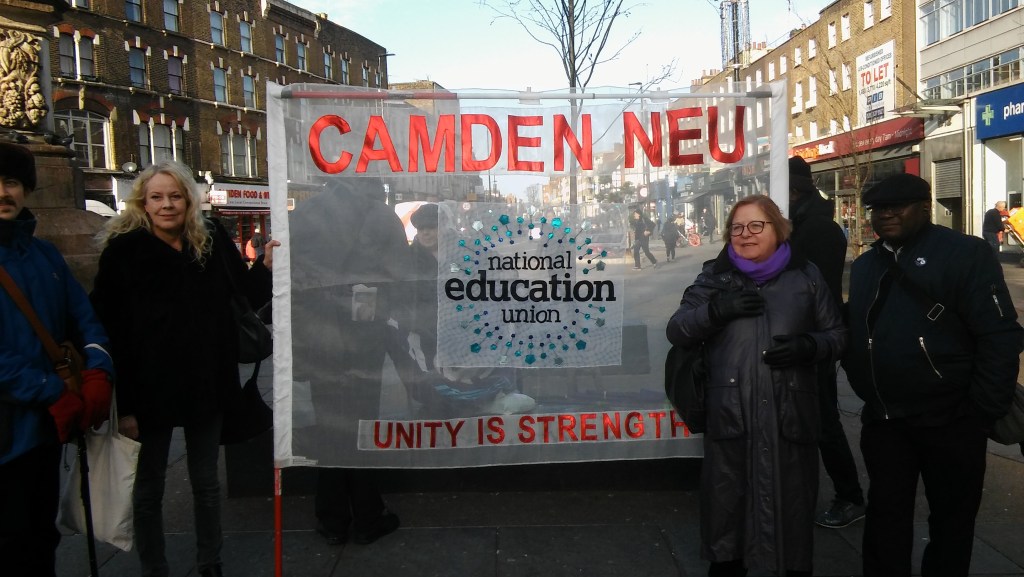 CAMDEN NEU
national
education
union
UNITY IS STRENGTH
TO LET